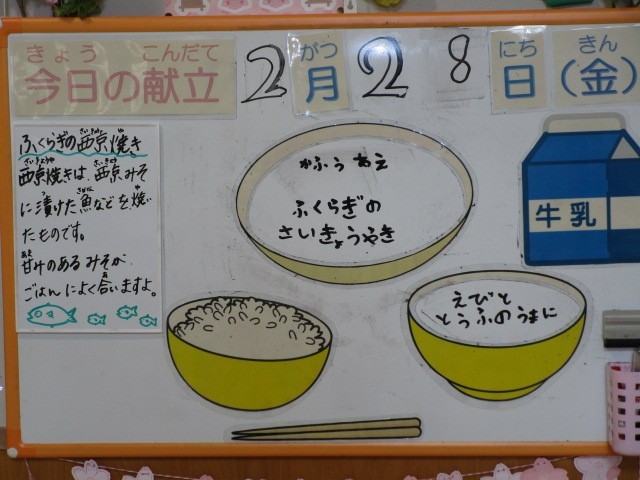 きょう こんだて
今日の献立
2 がつ 28 にち きん
月 日 (金)
ふくらぎの西京焼き
西京焼きは、西京みそ
に漬けた魚などを焼い
たものです。
甘みのあるみそが、
ごはんによく合いますよ。
かふうあえ
ふくらぎの
さいきょうやき
牛乳
えびと
とうふのうまに